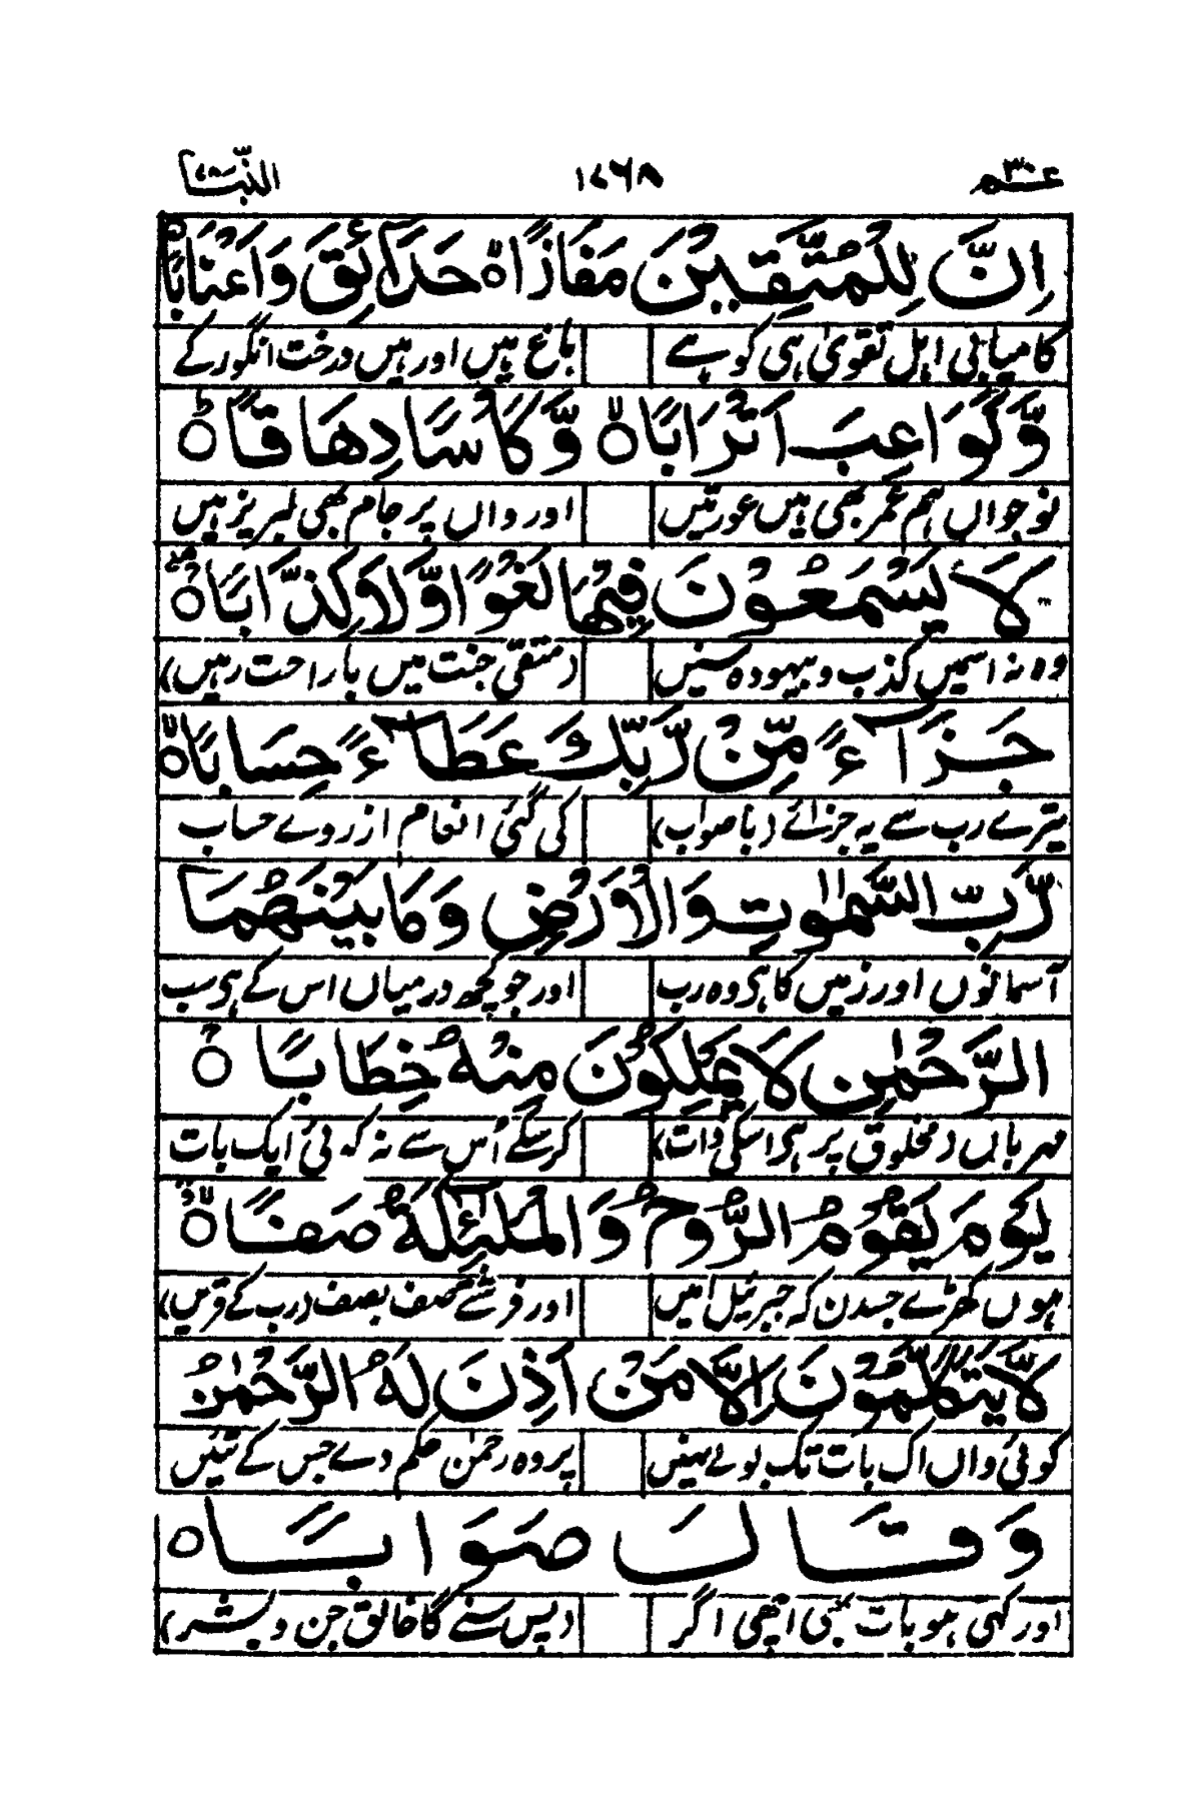 عـم ٣٠ ١٧٦٨ النّبـا ٧٨
اِنَّ لِلْمُتَّقِيْنَ مَفَازًاۙ حَدَآئِقَ وَاَعْنَابًاۙ
کامیابی اہل تقویٰ ہی کو ہے باغ ہیں اور ہیں درخت انگور کے
وَّكَوَاعِبَ اَتْرَابًاۙ وَّكَاْسًا دِهَاقًاؕ
نوجواں ہم عمر بھی ہیں عورتیں اور واں پر جام بھی لبریز ہیں
لَا يَسْمَعُوْنَ فِيْهَا لَغْوًا وَّلَا كِذّٰبًاۚ
وہ نہ اسمیں کذب و بیہودہ سنیں (متقی جنت میں باراحت رہیں)
جَزَآءً مِّنْ رَّبِّكَ عَطَآءً حِسَابًاۙ
تیرے رب سے یہ جزائے (باصواب) کی گئی انعام از روے حساب
رَّبِّ السَّمٰوٰتِ وَالْاَرْضِ وَمَا بَيْنَهُمَا
آسمانوں اور زمیں کا ہی وہ رب اور جو کچھ درمیاں اس کے ہی سب
الرَّحْمٰنِ لَا يَمْلِكُوْنَ مِنْهُ خِطَابًاۚ
مہرباں (مخلوق پر ہی اسکی ذات) کر سکے اُس سے نہ کوئی ایک بات
يَوْمَ يَقُوْمُ الرُّوْحُ وَالْمَلٰٓئِكَةُ صَفًّاۙ
ہوں کھڑے جسدن کہ جبرئیل امیں اور فرشتے صف بصف (رب کے قریں)
لَّا يَتَكَلَّمُوْنَ اِلَّا مَنْ اَذِنَ لَهُ الرَّحْمٰنُ
کوئی واں اک بات تک بولے نہیں پر وہ رحمٰن حکم دے جس کے تئیں
وَقَـالَ صَوَابًـا۝
اور کہی ہو بات بھی اچھی اگر (پس سنے گا خالق جن و بشر)